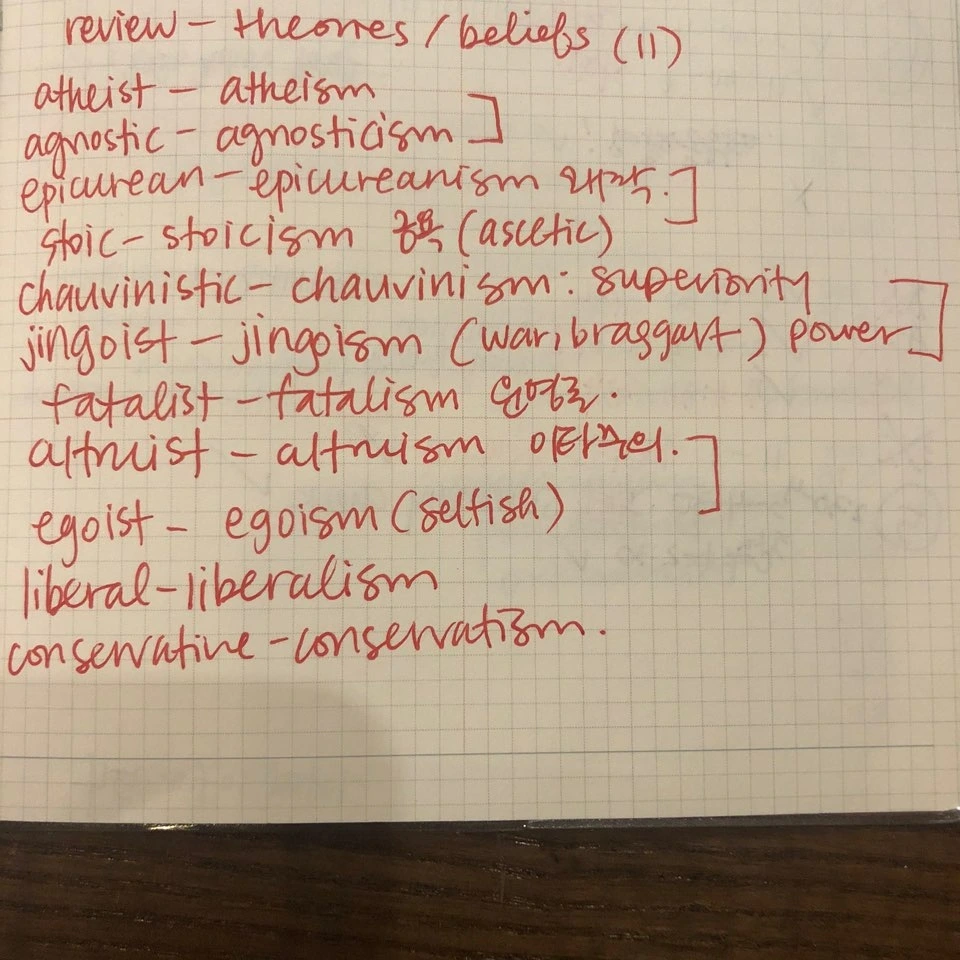 review - theories / beliefs (11)
atheist - atheism
agnostic - agnosticism
epicurean - epicureanism 쾌락.
stoic - stoicism 금욕 (ascetic)
chauvinistic - chauvinism : superiority
jingoist - jingoism (war, braggart) power
fatalist - fatalism 운명론.
altruist - altruism 이타주의.
egoist - egoism (selfish)
liberal - liberalism
conservative - conservatism.